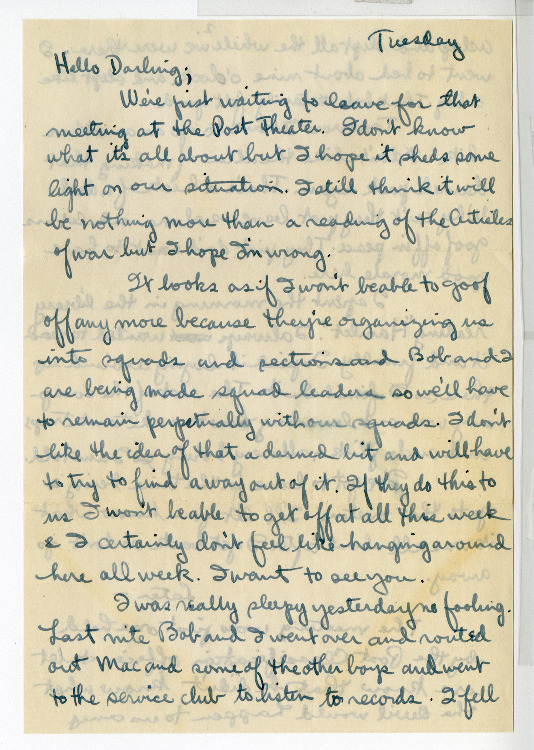 Tuesday
Hello Darling;
We're just waiting to leave for that
meeting at the Post Theater. I don't know
what it's all about but I hope it sheds some
light on our situation. I still think it will
be nothing more than a reading of the Articles
of war but I hope I'm wrong.
It looks as if I won't be able to goof
off any more because they're organizing us
into squads and sections and Bob and I
are being made squad leaders so we'll have
to remain perpetually with our squads. I don't
like the idea of that a darned bit and will have
to try to find a way out of it. If they do this to
us I won't be able to get off at all this week
& I certainly don't feel like hanging around
here all week. I want to see you.
I was really sleepy yesterday no fooling.
Last nite Bob and I went over and routed
out Mac and some of the other boys and went
to the service club to listen to records. I fell